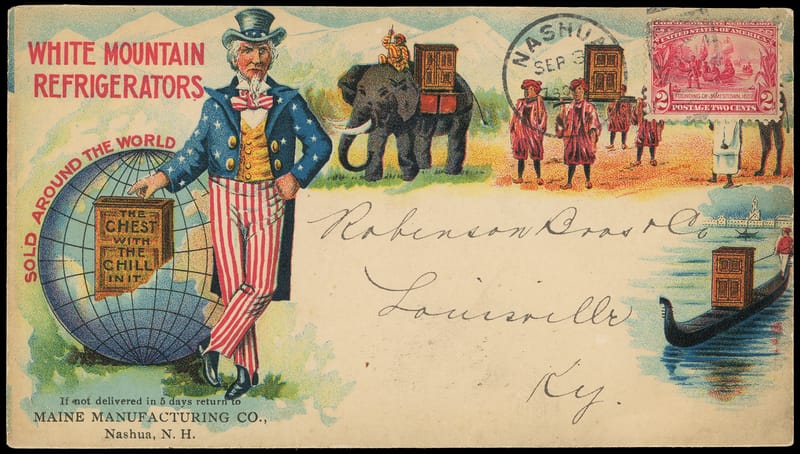 WHITE MOUNTAIN
REFRIGERATORS
SOLD AROUND THE WORLD
THE
CHEST
WITH
THE
CHILL
IN IT.
NASHUA
SEP 3
UNITED STATES OF AMERICA
FOUNDING OF JAMESTOWN, 1607
2 POSTAGE TWO CENTS 2
Robinson Bros & Co
Louisville
Ky.
If not delivered in 5 days return to
MAINE MANUFACTURING CO.,
Nashua, N. H.